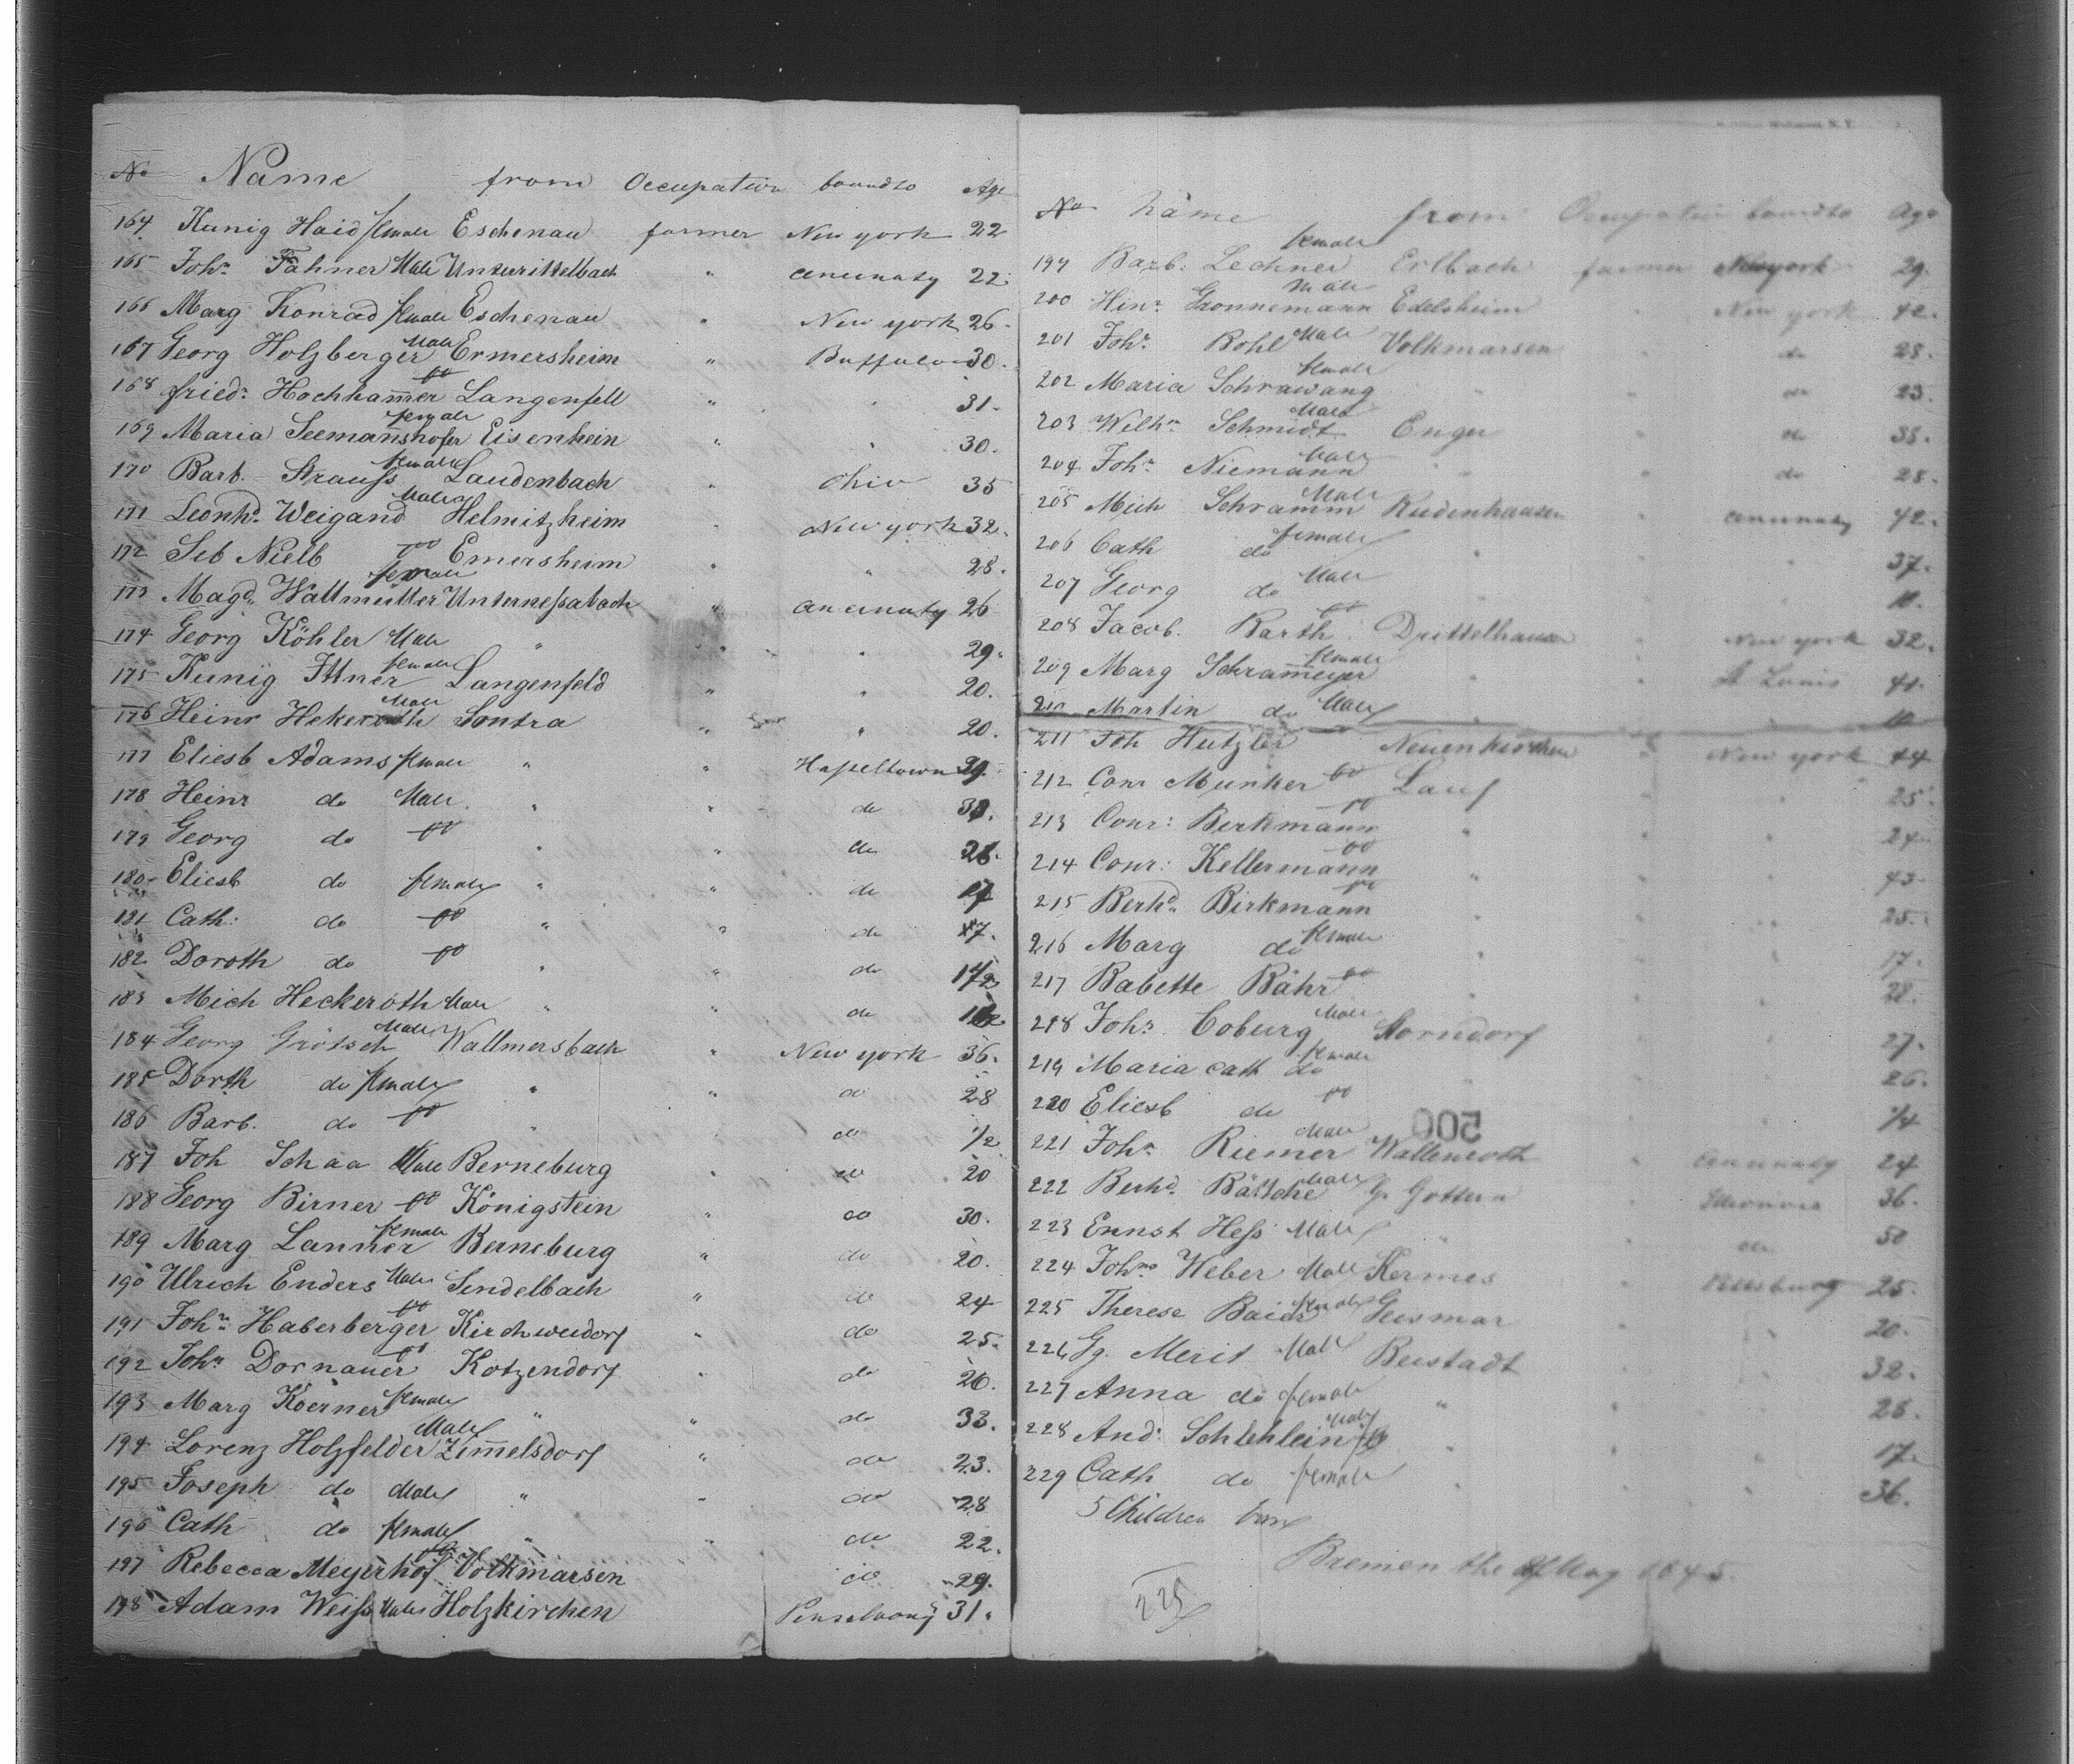 No Name from Occupation bound to Age
164 Kunig Haid female Eschenau farmer New york 22
165 Johs Fahner Male Unterittelbach " Cincinaty 22
166 Marg Konrad female Eschenau " New york 26
167 Georg Holzberger Male Ermersheim " Buffalo 30
168 fried: Hochhammer do Langenfell " " 31
169 Maria Seemannshofer female Eisenhein " " 30
170 Barb. Strauss female Laudenbach " Ohio 35
171 Leonhd Weigand Male Helmitzheim " New york 32
172 Seb Nielb do Emersheim " " 28
173 Magd. Wallmütter female Unternessabach " Cincinaty 26
174 Georg Köhler Male " " " 29
175 Kunig Ittner female Langenfeld " " 20
176 Heinr Hekeroth Male Sontra " " 20
177 Eliesb Adams female " " Hasseltown 29
178 Heinr do Male " " do
179 Georg do do " " do
180 Eliesb do female " " do
181 Cath: do do " " do
182 Doroth do do " " do
183 Mich Heckeroth Male " " do
184 Georg Grötsch Male Wallmersbach " New york 36
185 Dorth do female " " do 28
186 Barb. do do " " do 1/2
187 Joh Schaa Male Berneburg " do 20
188 Georg Birner do Königstein " do 30
189 Marg Lanner female Berneburg " do 20
190 Ulrich Enders Male Sendelbach " do 24
191 Johs Haberberger do Kirchweidorf " do 25
192 Johs Dornauer do Kotzendorf " do 26
193 Marg Koerner female " " do 33
194 Lorenz Holzfelder Male Zimmelsdorf " do 23
195 Joseph do Male " " do 28
196 Cath do female " " do 22
197 Rebecca Meyerhof do Volkmarsen do 29
198 Adam Weiss Male Holzkirchen 31
No Name from Occupation bound to Age
199 Barb: Lechner female Erlbach farmer New york 29
200 Hinr Gronnemann Male Edelsheim " New york 42
201 Johs Bohl Male Volkmarsen " do 28
202 Maria Schrawang female " " do 23
203 Wilhm Schmidt Male Enger " do 38
204 Johs Niemann Male " " do 28
205 Mich Schramm Male Rudenhausen " Cincinaty 42
206 Cath do female " " " 37
207 Georg do Male " " " 10
208 Jacob. Barth do Drittelhausen " New york 32
209 Marg Schrameyer female " " St Louis 40
210 Martin do Male " " " 10
211 Joh Hutzler Neuenkirchen " New york 44
212 Conr Munker do Lauf " " 25
213 Conr: Berkmann do " " " 24
214 Conr: Kellermann do " " " 43
215 Berhd Birkmann do " " " 25
216 Marg do female " " " 17
217 Babette Bähr do " " " 28
218 Johs. Coburg Male Storndorf " " 27
219 Maria cath do female " " " 26
220 Eliesb do do " " " 1/4
500
221 Johs Riemer Male Wallenroth " Cincinaty 24
222 Berhd Bättche Male G. Gottern " 36
223 Ernst Hess Male " " do 50
224 Johns Weber Male Hermes " Pittsburg 25
225 Therese Baier female Geismar " " 20
226 Gg. Merit Male Beistadt " " 32
227 Anna do female " " " 28
228 And: Schlehlein Male " " " 17
229 Cath do female " " " 36
5 Children born
Bremen the May 1845
225